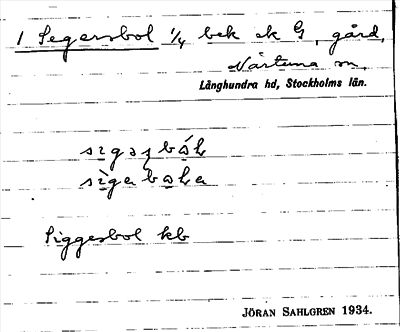 1 Segersbol 1/4 bek sk G, gård,
Närtuna sn,
Långhundra hd, Stockholms län.
Siggesbol kb
JÖRAN SAHLGREN 1934.